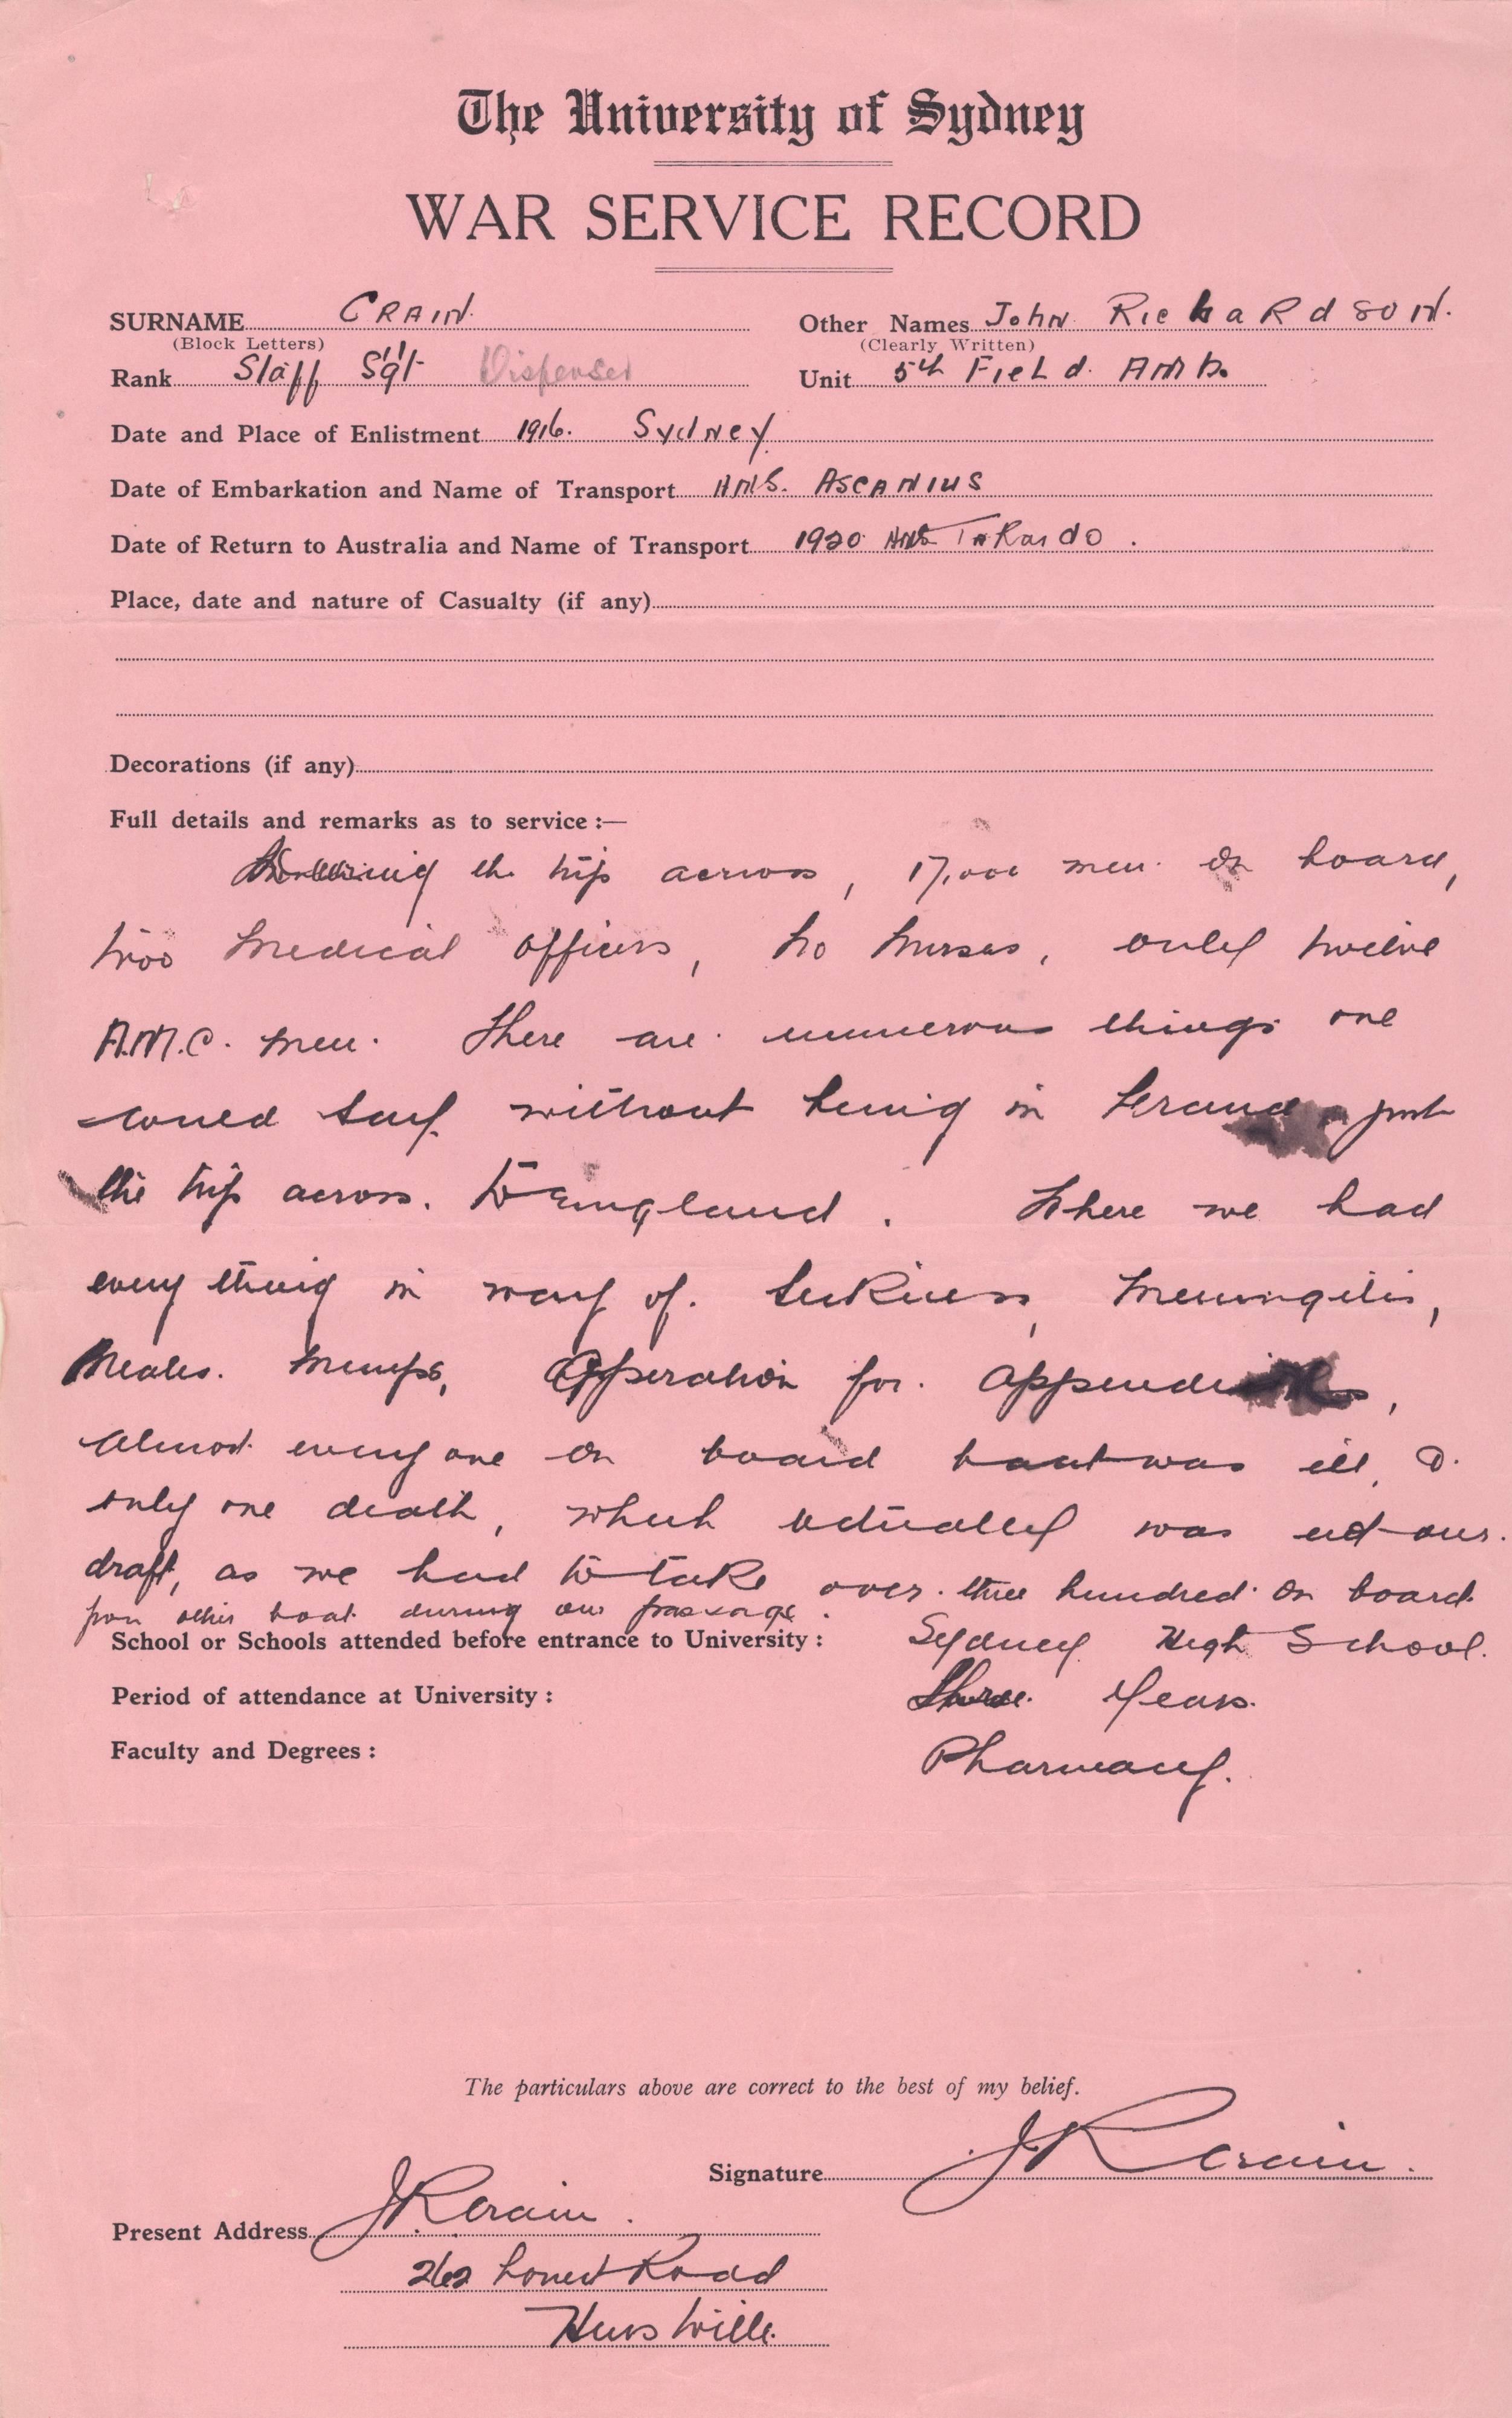 The University of Sydney
WAR SERVICE RECORD
SURNAME CRAIN. Other Names John RichaRdsoN.
(Block Letters) (Clearly Written)
Rank Staff Sgt Dispenser Unit 5th FieLd AMB.
Date and Place of Enlistment 1916. Sydney
Date of Embarkation and Name of Transport HMS. ASCANIUS
Date of Return to Australia and Name of Transport 1920 HMS
Place, date and nature of Casualty (if any)
Decorations (if any)
Full details and remarks as to service :—
the trip across, 17,000 men on board,
two medical officers, no nurses, only twelve
A.M.C. men. There are numerous things one
could say without being in France just
the trip across. to England. Where we had
every thing in way of. sickness,
Mumps, Opperation for.
almost every one on board was ill,
only one death, which actually was our.
draft, as we had to take over three hundred on board
from other boat during our passage.
School or Schools attended before entrance to University : Sydney High School.
Period of attendance at University : Three. Years.
Faculty and Degrees : Pharmacy.
The particulars above are correct to the best of my belief.
Signature JRCrain.
Present Address JRCrain.
262 Forest Road
Hurstville.